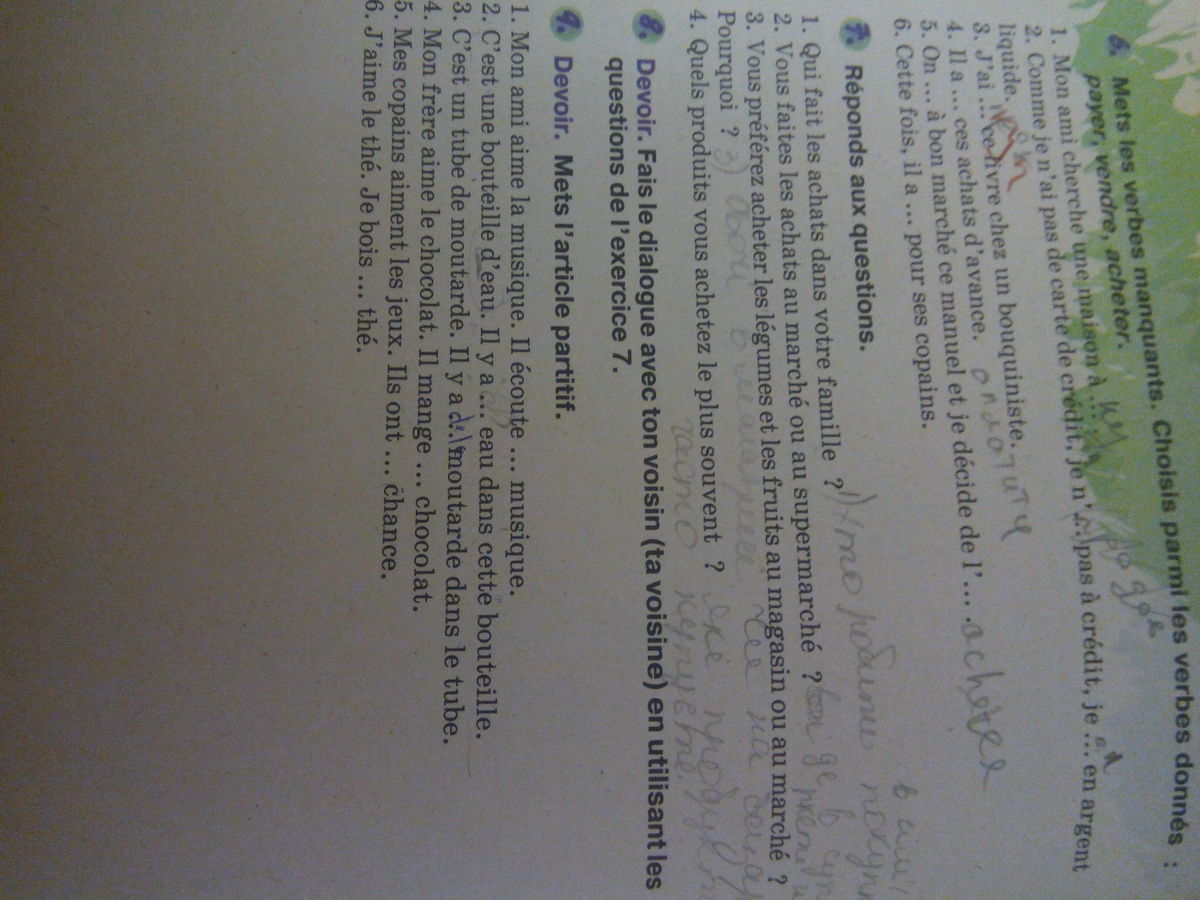 6. Mets les verbes manquants. Choisis parmi les verbes donnés :
payer, vendre, acheter.
1. Mon ami cherche une maison à ... .
2. Comme je n'ai pas de carte de crédit, je n' ... pas à crédit, je ... en argent
liquide.
3. J'ai ... ce livre chez un bouquiniste.
4. Il a ... ces achats d'avance.
5. On ... à bon marché ce manuel et je décide de l' ... .
6. Cette fois, il a ... pour ses copains.
7. Réponds aux questions.
1. Qui fait les achats dans votre famille ?
2. Vous faites les achats au marché ou au supermarché ?
3. Vous préférez acheter les légumes et les fruits au magasin ou au marché ?
Pourquoi ?
4. Quels produits vous achetez le plus souvent ?
8. Devoir. Fais le dialogue avec ton voisin (ta voisine) en utilisant les
questions de l'exercice 7.
9. Devoir. Mets l'article partitif.
1. Mon ami aime la musique. Il écoute ... musique.
2. C'est une bouteille d'eau. Il y a ... eau dans cette bouteille.
3. C'est un tube de moutarde. Il y a moutarde dans le tube.
4. Mon frère aime le chocolat. Il mange ... chocolat.
5. Mes copains aiment les jeux. Ils ont ... chance.
6. J'aime le thé. Je bois ... thé.